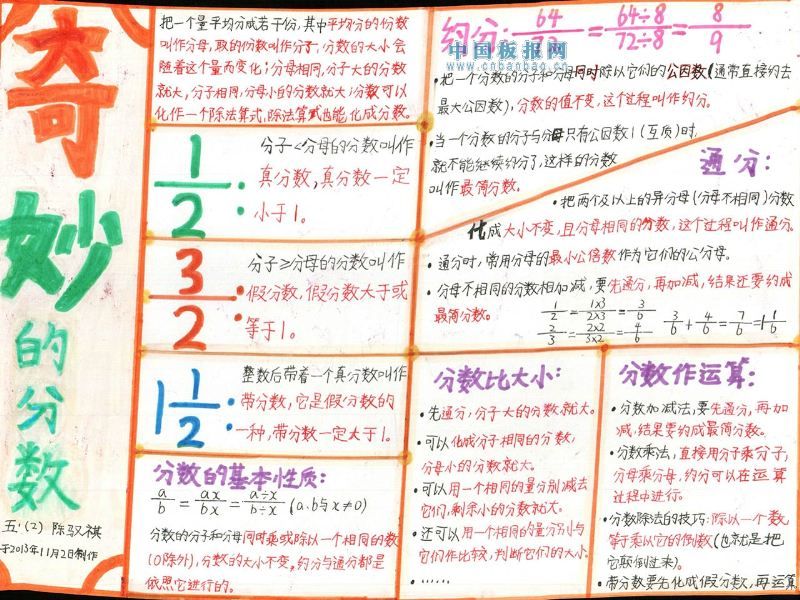 奇妙的分数
五.(2) 陈驭祺
于2013年11月2日制作
把一个量平均分成若干份,其中平均分的份数
叫作分母,取的份数叫作分子,分数的大小会
随着这个量而变化;分母相同,分子大的分数
就大,分子相同,分母小的分数就大;分数可以
化作一个除法算式,除法算式也能化成分数。
1/2:
分子<分母的分数叫作
真分数,真分数一定
小于1。
3/2:
分子≥分母的分数叫作
假分数,假分数大于或
等于1。
1 1/2:
整数后带着一个真分数叫作
带分数,它是假分数的
一种,带分数一定大于1。
分数的基本性质:
a/b = ax/bx = a÷x/b÷x (a.b与x≠0)
分数的分子和分母同时乘或除以一个相同的数
(0除外),分数的大小不变。约分与通分都是
依照它进行的。
约分: 64/72 = 64÷8/72÷8 = 8/9
中国板报网
www.cnbanbao.cn
·把一个分数的分子和分母同时除以它们的公因数(通常直接约去
最大公因数),分数的值不变,这个过程叫作约分。
·当一个分数的分子与分母只有公因数1(互质)时,
就不能继续约分了,这样的分数
叫作最简分数。
通分:
·把两个及以上的异分母(分母不相同)分数
化成大小不变,且分母相同的分数,这个过程叫作通分。
·通分时,常用分母的最小公倍数作为它们的公分母。
·分母不相同的分数相加减,要先通分,再加减,结果还要约成
最简分数。
1/2 = 1×3/2×3 = 3/6
2/3 = 2×2/3×2 = 4/6
3/6 + 4/6 = 7/6 = 1 1/6
分数比大小:
·先通分,分子大的分数就大。
·可以化成分子相同的分数,
分母小的分数就大。
·可以用一个相同的量分别减去
它们,剩余小的分数就大。
·还可以用一个相同的量分别与
它们作比较,判断它们的大小.
·……
分数作运算:
·分数加减法,要先通分,再加
减,结果要约成最简分数。
·分数乘法,直接用分子乘分子,
分母乘分母,约分可以在运算
过程中进行。
·分数除法的技巧:除以一个数,
等于乘以它的倒数(也就是把
它颠倒过来)。
·带分数要先化成假分数,再运算